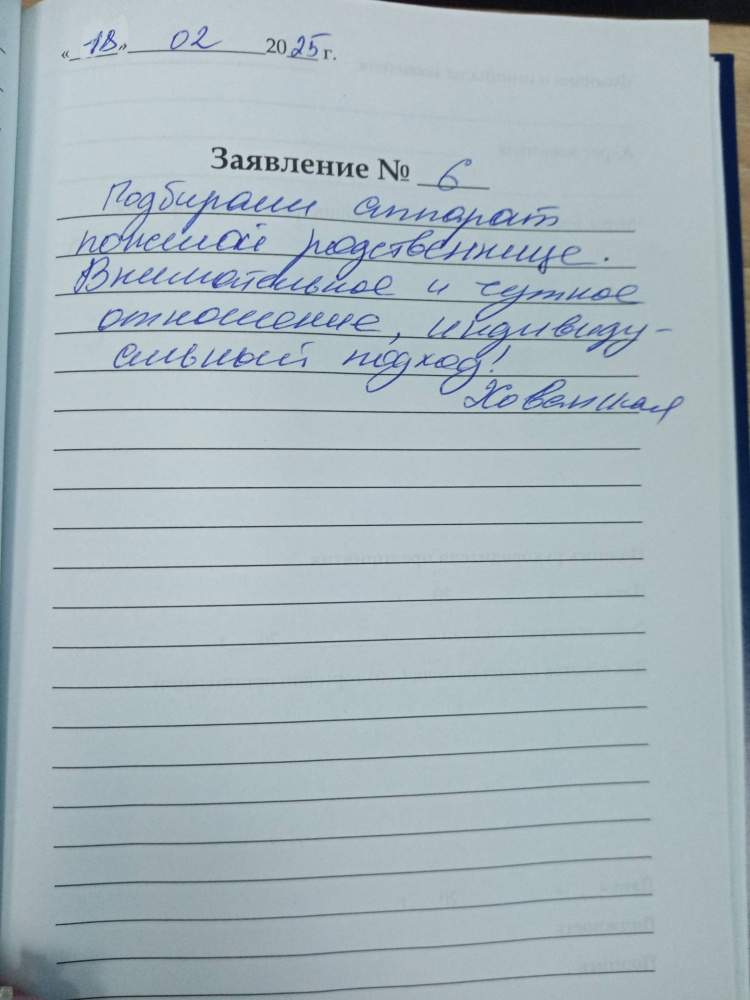 «18» 02 2025 г.
Заявление № 6
Подбирали аппарат
пожилой родственнице.
Внимательное и чуткое
отношение, индивиду-
альный подход!